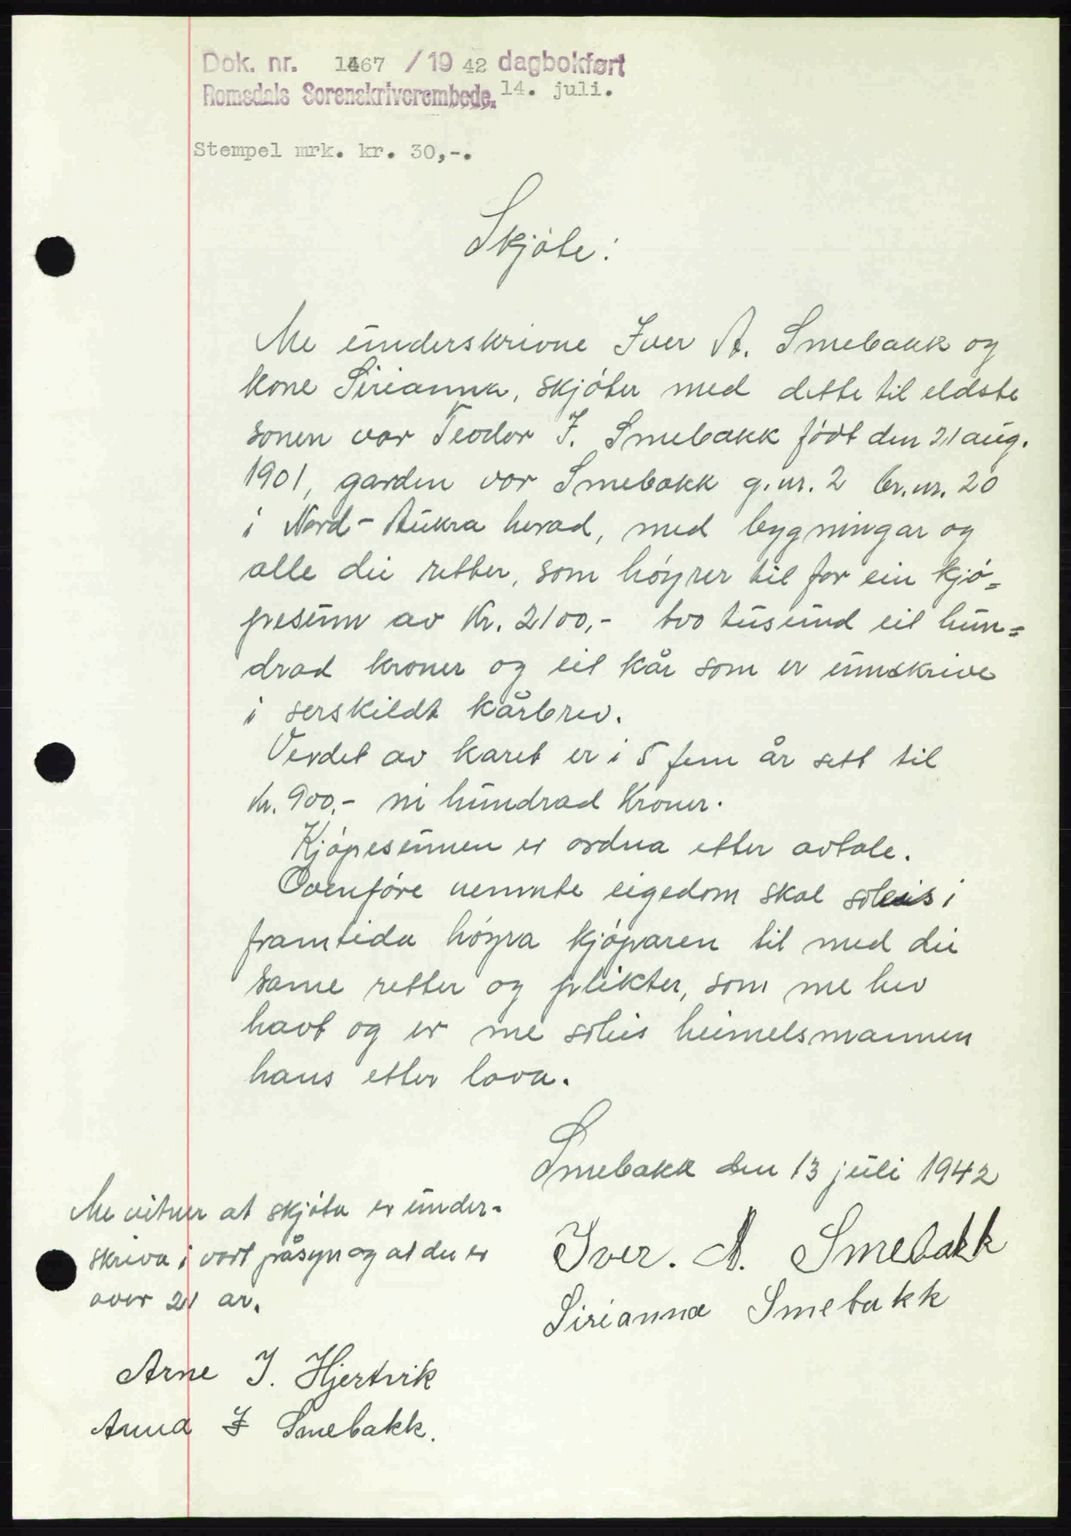 Dok. nr. 1467 / 19 42 dagbokført
Romsdals Sorenskriverembede. 14. juli.
Stempel mrk. kr. 30,-.
Skjøte:
Me underskrivne Iver A. Smebakk og
kone Sirianna, skjøter med dette til eldste
sonen vor Teodor I. Smebakk født den 21 aug.
1901, garden vor Smebakk g.nr. 2 br.nr. 20
i Nord-Aukra herad, med bygningar og
alle dei retter, som høyrer til for ein kjø=
pesum av Kr. 2100,- tvo tusund eit hun=
drad kroner og eit kår som er innskrive
i serskildt kårbrev.
Verdet av karet er i 5 fem år sett til
Kr. 900,- ni hundrad Kroner.
Kjøpesummen er ordna etter avtale.
Ovenføre nemnte eigedom skal soleis i
framtida høyra kjøparen til med dei
same retter og plikter, som me hev
havt og er me soleis heimelsmannen
hans etter lova.
Smebakk den 13 juli 1942
Me vitner at skjøta er under-
skriva i vort påsyn og at dei er
over 21 ar.
Iver. A. Smebakk
Sirianna Smebakk
Arne J. Hjertvik
Anna I Smebakk.